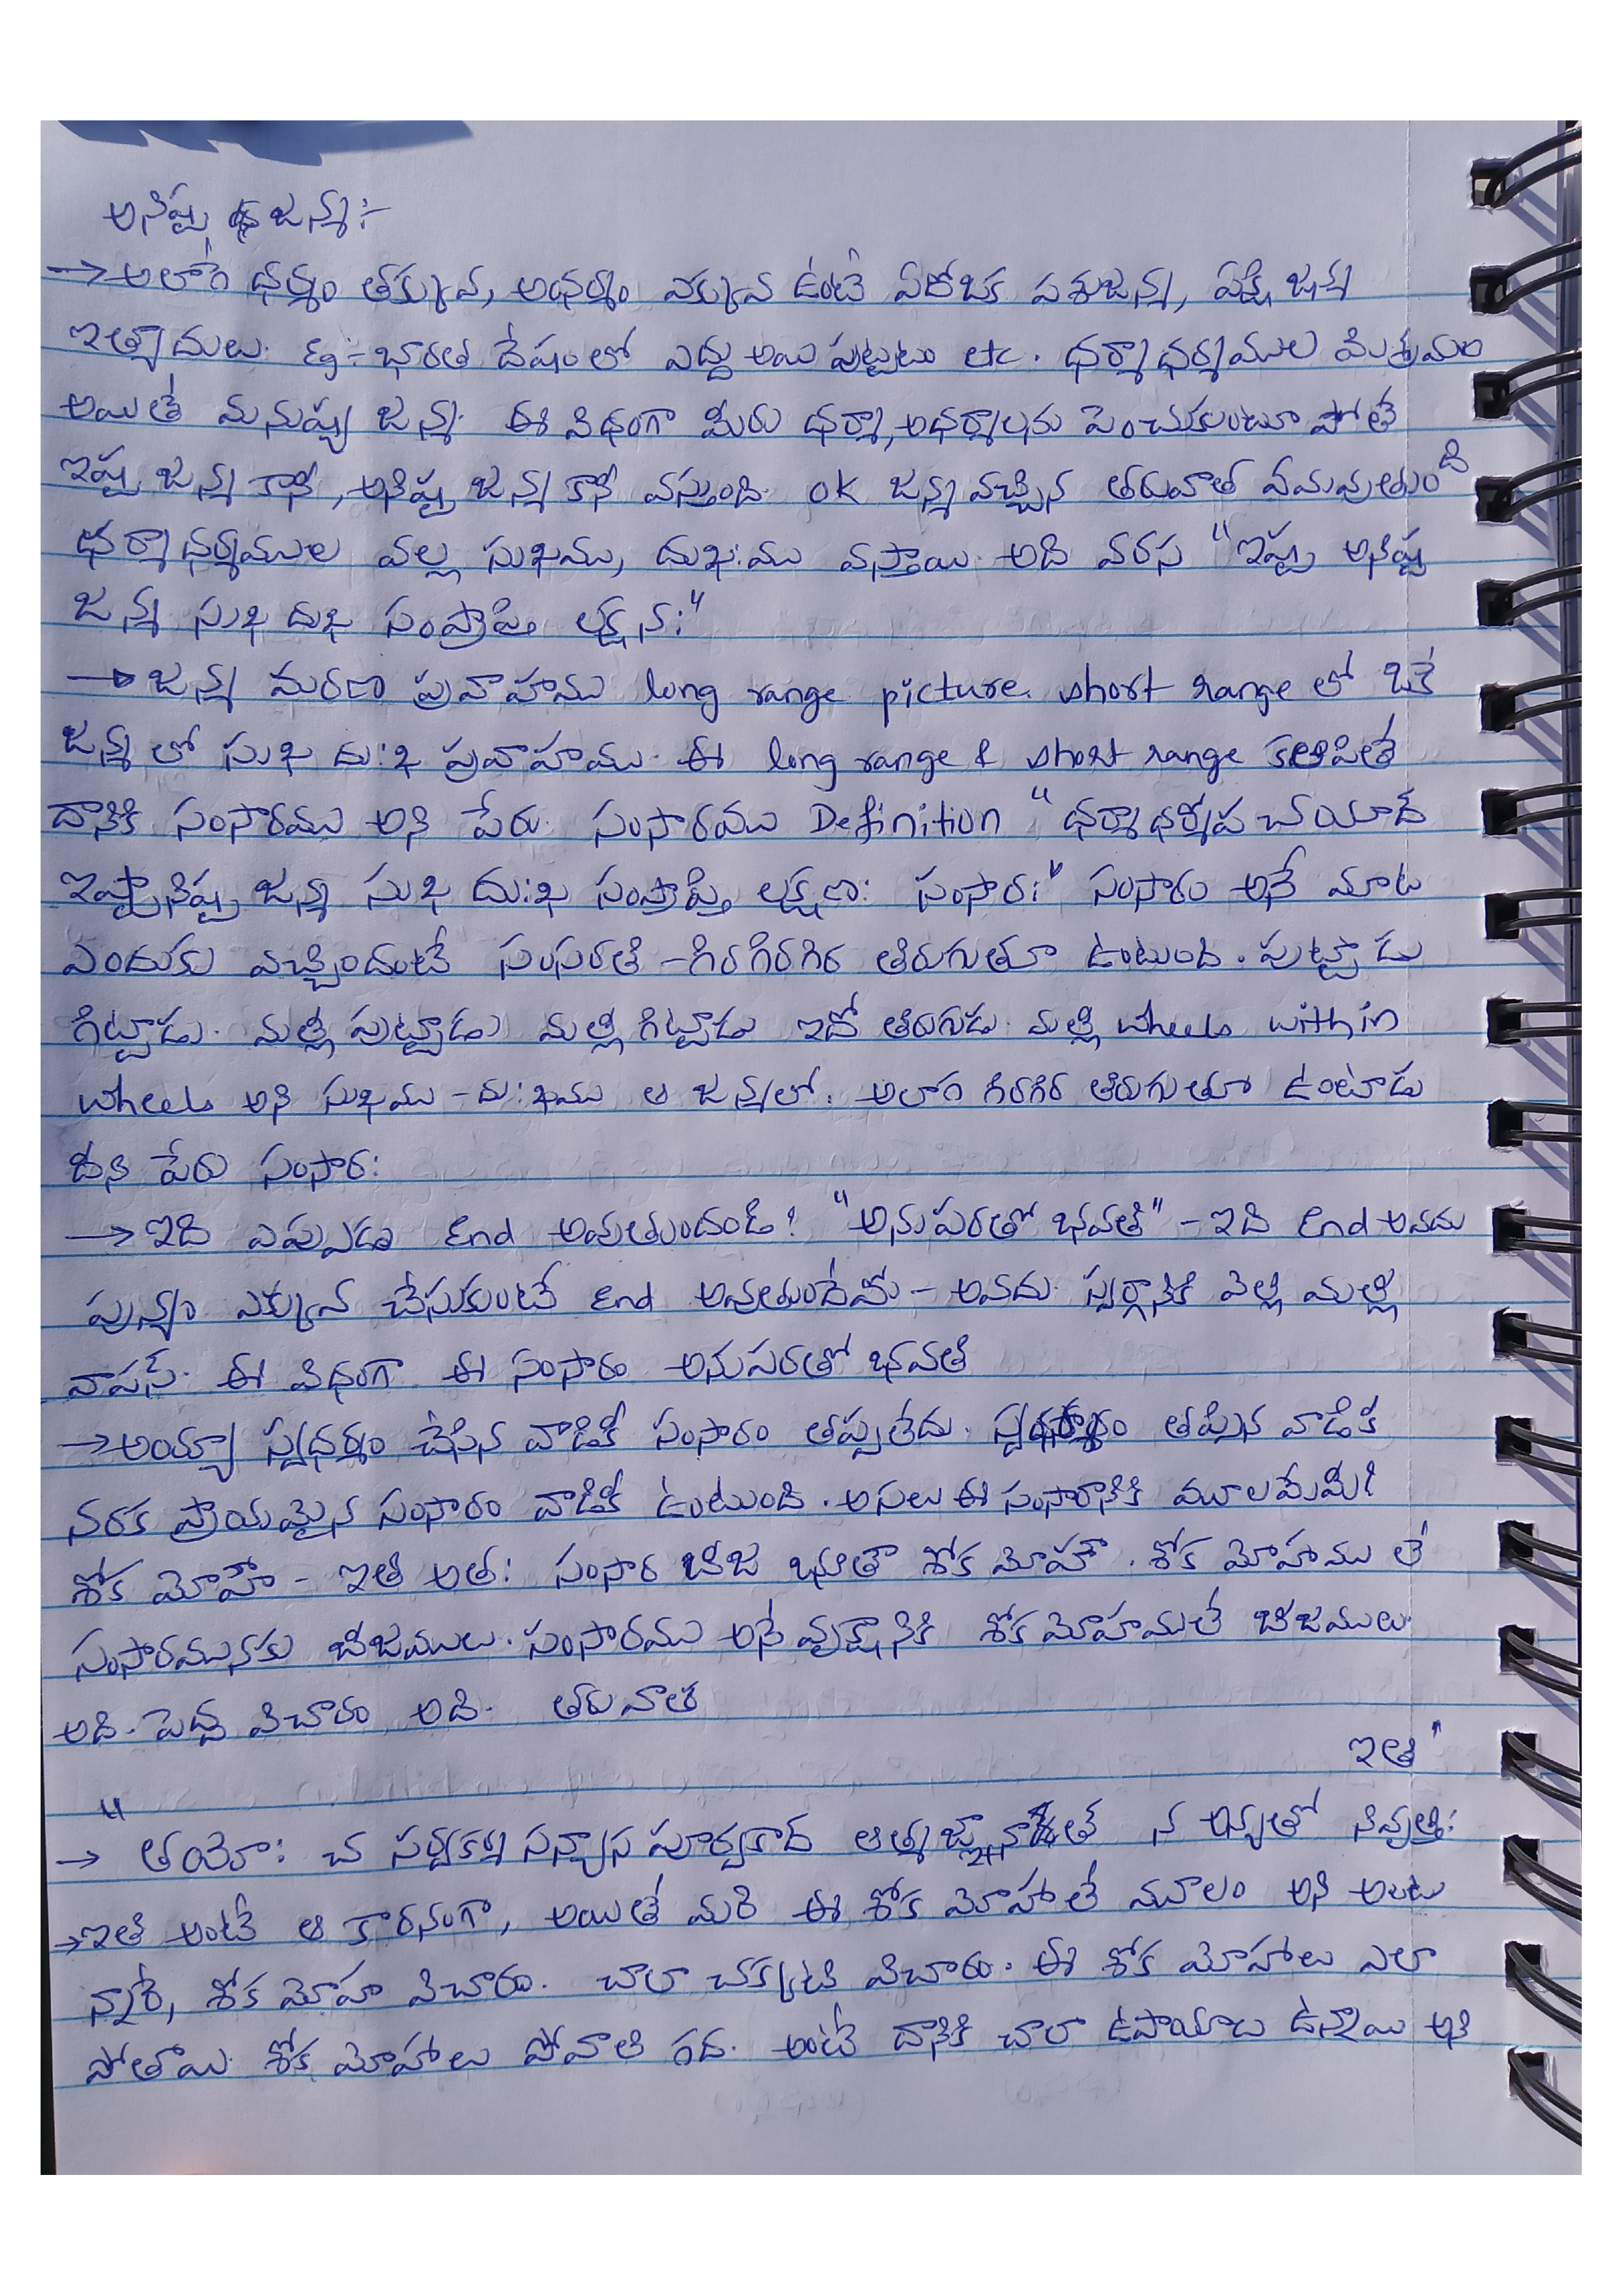 అనిష్ట జన్మ:-
→ అలాగే ధర్మం తక్కువ, అధర్మం ఎక్కువ ఉంటే ఏదోఒక పశుజన్మ, పక్షి జన్మ
ఇత్యాదులు. Eg:- భారత దేషంలో ఎద్దు అయి పుట్టటం etc. ధర్మాధర్మముల మిశ్రమం
అయితే మనుష్య జన్మ. ఈ విధంగా మీరు ధర్మా,అధర్మాలను పెంచుకుంటూ పోతే
ఇష్ట జన్మ కానీ, అనిష్ట జన్మ కానీ వస్తుంది. ok జన్మ వచ్చిన తరువాత ఏమవుతుంది
ధర్మాధర్మముల వల్ల సుఖము, దుఖ:ము వస్తాయి. అది వరస "ఇష్ట అనిష్ట
జన్మ సుఖ దుఖ సంప్రాప్తి లక్షన:"
→ జన్మ మరణ ప్రవాహము long range picture. short range లో ఒకే
జన్మ లో సుఖ దు:ఖ ప్రవాహము. ఈ long range & short range కలిపితే
దానికి సంసారము అని పేరు. సంసారము Definition "ధర్మాధర్మోప చయాద్
ఇష్టానిష్ట జన్మ సుఖ దు:ఖ సంప్రాప్తి లక్షణ: సంసార:" సంసారం అనే మాట
ఎందుకు వచ్చిందంటే సంసరతి - గిరగిరగిర తిరుగుతూ ఉంటుంది. పుట్టాడు
గిట్టాడు. మళ్లి పుట్టాడు మళ్లి గిట్టాడు ఇదో తిరుగుడు. మళ్లి wheels within
wheels అని సుఖము - దు:ఖము ఆ జన్మలో. అలాగ గిరగిర తిరుగుతూ ఉంటాడు
దీని పేరు సంసార:
→ ఇది ఎప్పుడు End అవుతుందండీ! "అనుపరతో భవతి" - ఇది End అవదు
పున్యం ఎక్కువ చేసుకుంటే End అవుతుందేమో - అవదు. స్వర్గానికి వెళ్లి మళ్లి
వాపస్. ఈ విధంగా ఈ సంసారం అనుపరతో భవతి
→ అయ్యా స్వధర్మం చేసిన వాడికీ సంసారం తప్పలేదు. తప్పిన వాడికి
నరక ప్రాయమైన సంసారం వాడికీ ఉంటుంది. అసలు ఈ సంసారానికి మూలమేమి?
శోక మోహౌ - ఇతి అత: సంసార బీజ భూతౌ శోక మోహౌ. శోక మోహము లే
సంసారమునకు బీజములు. సంసారము అనే వృక్షానికి శోక మోహములే బీజములు.
అది. పెద్ద విచారం అది. తరువాత
ఇతి"
" → తయో: చ సర్వకర్మ సన్యాస పూర్వకాద్ ఆత్మజ్ఞానాత్ న అన్యతో నివృత్తి:
→ ఇతి అంటే ఆ కారనంగా, అయితే మరి ఈ శోక మోహాలే మూలం అని అంటు
న్నారే, శోక మోహ విచారం. చాలా చక్కటి విచారం. ఈ శోక మోహాలు ఎలా
పోతాయి. శోక మోహాలు పోవాలి గద. అంటే దానికి చాలా ఉపాయాలు ఉన్నాయి అని